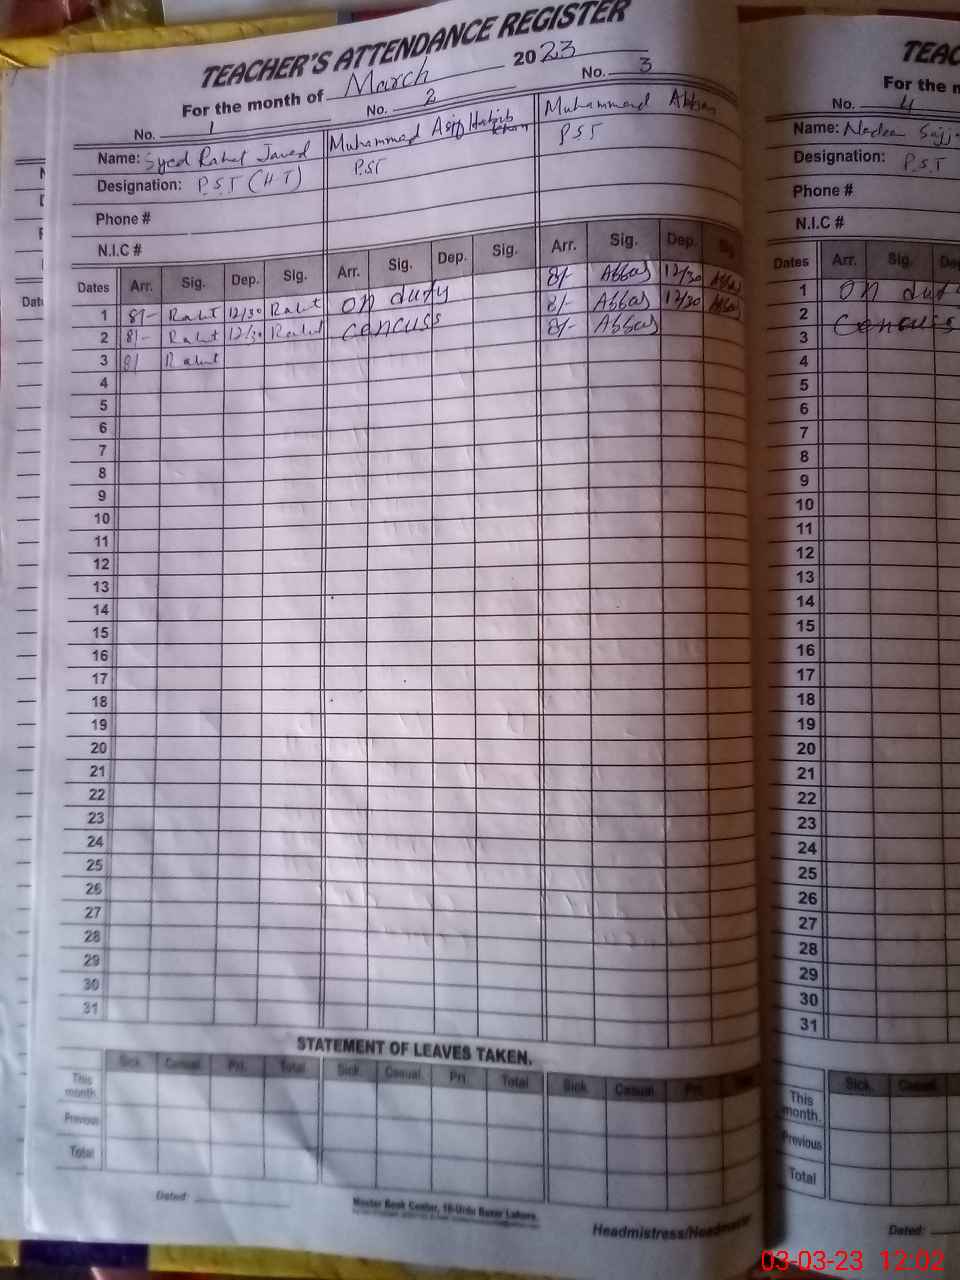 TEACHER'S ATTENDANCE REGISTER
For the month of March 2023
No. 1 No. 2 No. 3
Name: Syed Rahat Javed Muhammad Asif Habib Khan Muhammad Abbas
Designation: P.S.T (H.T) P.S.T P.S.T
Phone #
N.I.C #
Dates Arr. Sig. Dep. Sig. Arr. Sig. Dep. Sig. Arr. Sig. Dep. Sig
1 8/- Rahat 12/30 Rahat on duty 8/- Abbas 12/30 Abbas
2 8/- Rahat 12/30 Rahat cencuss 8/- Abbas 12/30 Abbas
3 8/ Rahat 8/- Abbas
4
5
6
7
8
9
10
11
12
13
14
15
16
17
18
19
20
21
22
23
24
25
26
27
28
29
30
31
STATEMENT OF LEAVES TAKEN.
Sick Casual Pri. Total Sick. Casual. Pri. Total Sick. Casual.
This month.
Previous
Total
Dated:
Master Book Center, 16-Urdu Bazar Lahore.
Headmistress/Headmaster
TEAC
For the m
No. 4
Name: Nadeem Sajj
Designation: P.S.T
Phone #
N.I.C #
Dates Arr. Sig. De
1 on dut
2 Cencuss
3
4
5
6
7
8
9
10
11
12
13
14
15
16
17
18
19
20
21
22
23
24
25
26
27
28
29
30
31
Sick. Casual.
This month.
Previous
Total
Dated:
03-03-23 12:02